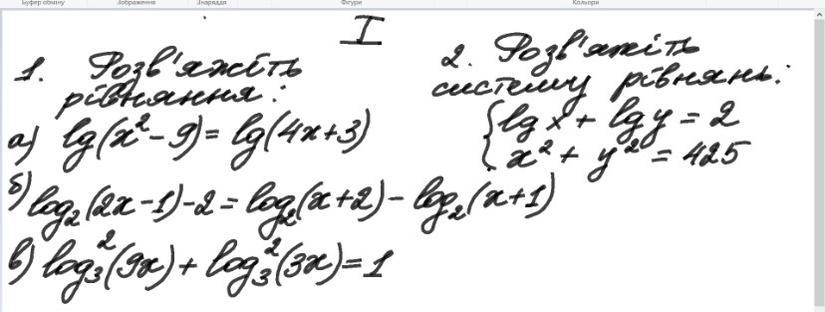 Буфер обміну Зображення Знаряддя Фігури Кольори
I
1. Розв'яжіть
рівняння:
а) lg(x²-9)= lg(4x+3)
б) log₂(2x-1)-2 = log₂(x+2)- log₂(x+1)
в) log₃²(9x)+ log₃²(3x)=1
2. Розв'яжіть
систему рівнянь:
{lg x + lg y = 2
x² + y² = 425